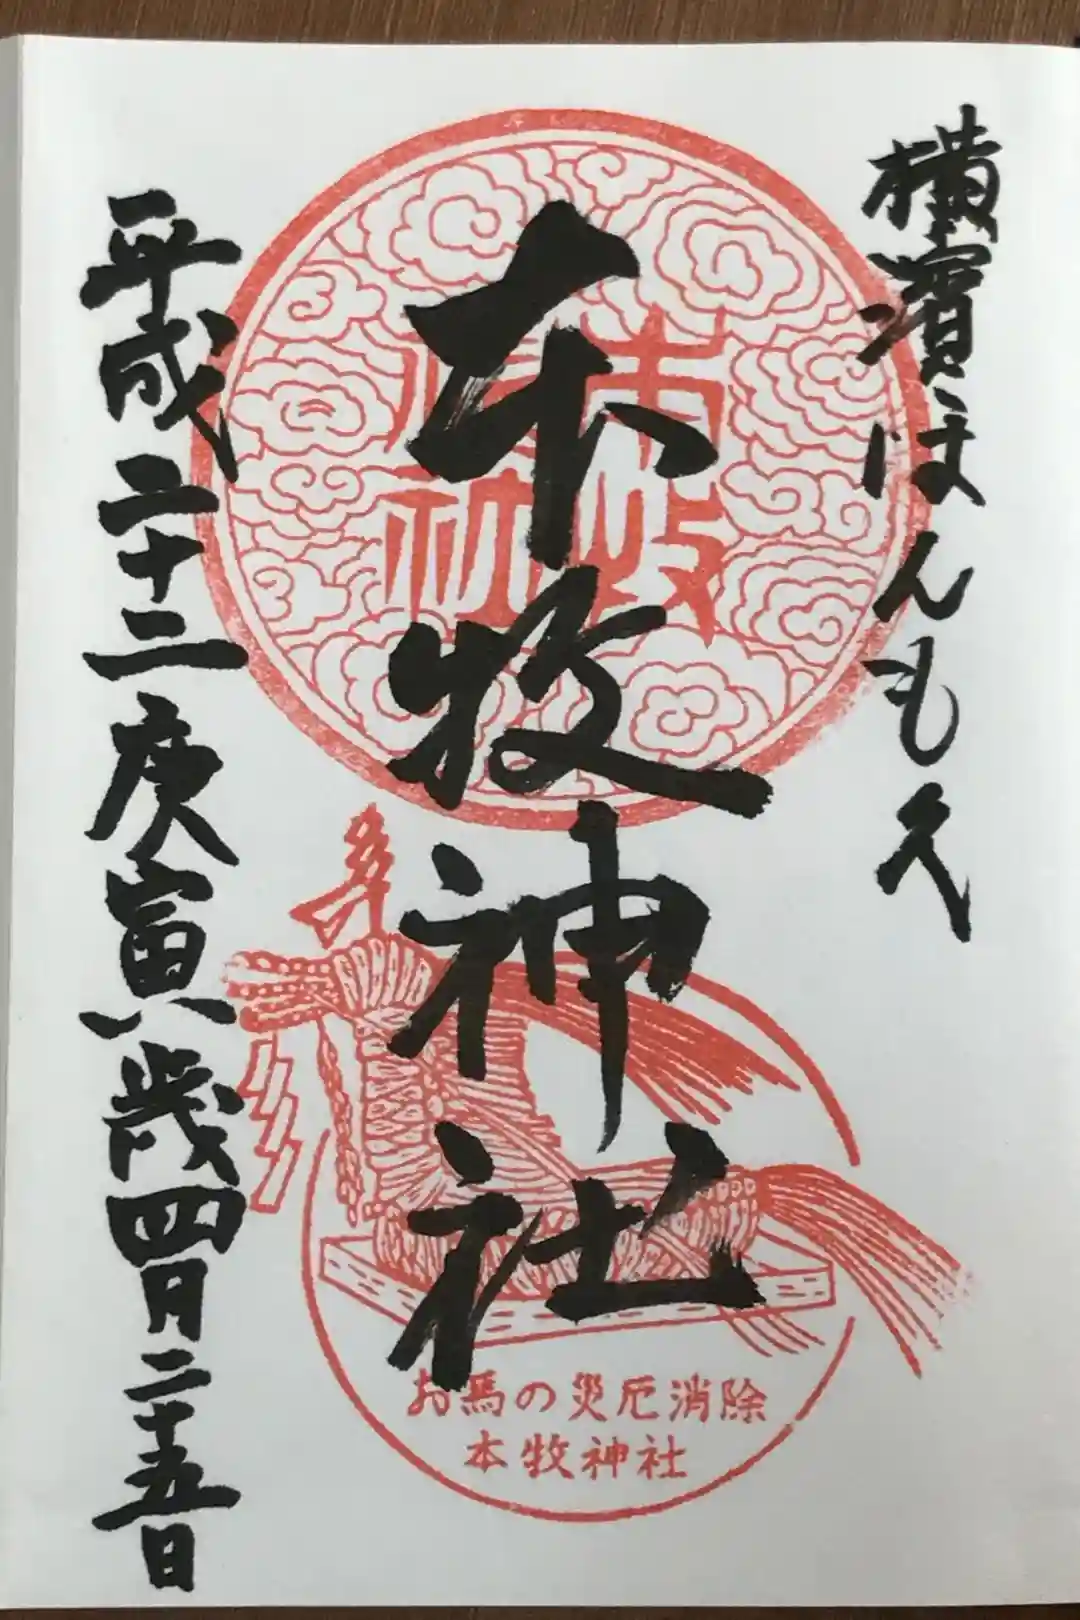 横濱ほんもく
本牧神社
本牧
神社
平成二十二庚寅歳四月二十五日
お馬の災厄消除
本牧神社